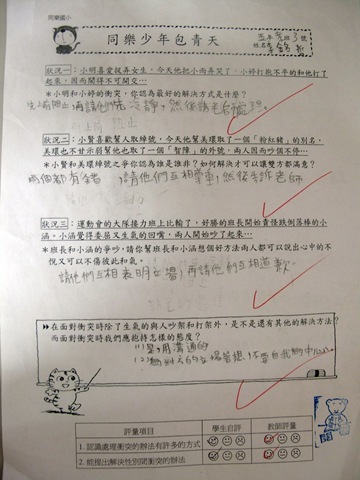 同樂國小
同樂少年包青天
五年 班 3號
姓名
狀況一：小明喜愛捉弄女生，今天他把小雨弄哭了，小婷打抱不平的和他打了
起來，因而鬧得不可開交…
＊小明和小婷的衝突，你認為最好的解決方式是什麼？
再請他們 冷靜，然後請老師處理。
狀況二：小賢喜歡幫人取綽號，今天他幫美環取了一個「粉紅豬」的別名，
美環也不甘示弱幫他也取了一個「智障」的外號，兩人因而吵個不停…
＊小賢和美環綽號之爭你認為誰是誰非？如何解決才可以讓雙方都滿意？
兩個都有錯，請他們互相 ，然後告訴老師
狀況三：運動會的大隊接力班上比輸了，好勝的班長開始責怪跌倒落棒的小
涵。小涵覺得委屈又生氣的回嘴，兩人開始吵了起來…
＊班長和小涵的爭吵，請你幫班長和小涵想個好方法兩人都可以說出心中的不
悅又可以不傷彼此和氣。
請他們互相表明立場，再請他們互相道歉。
在面對衝突時除了生氣的與人吵架和打架外，是不是還有其他的解決方法？
而面對衝突時我們應抱持怎樣的態度？
(1)是，用溝通的
(2)想到人的立場著想，不要自我的中心
評量項目 學生自評 教師評量
1.認識處理衝突的辦法有許多的方式
2.能提出解決性別間衝突的辦法